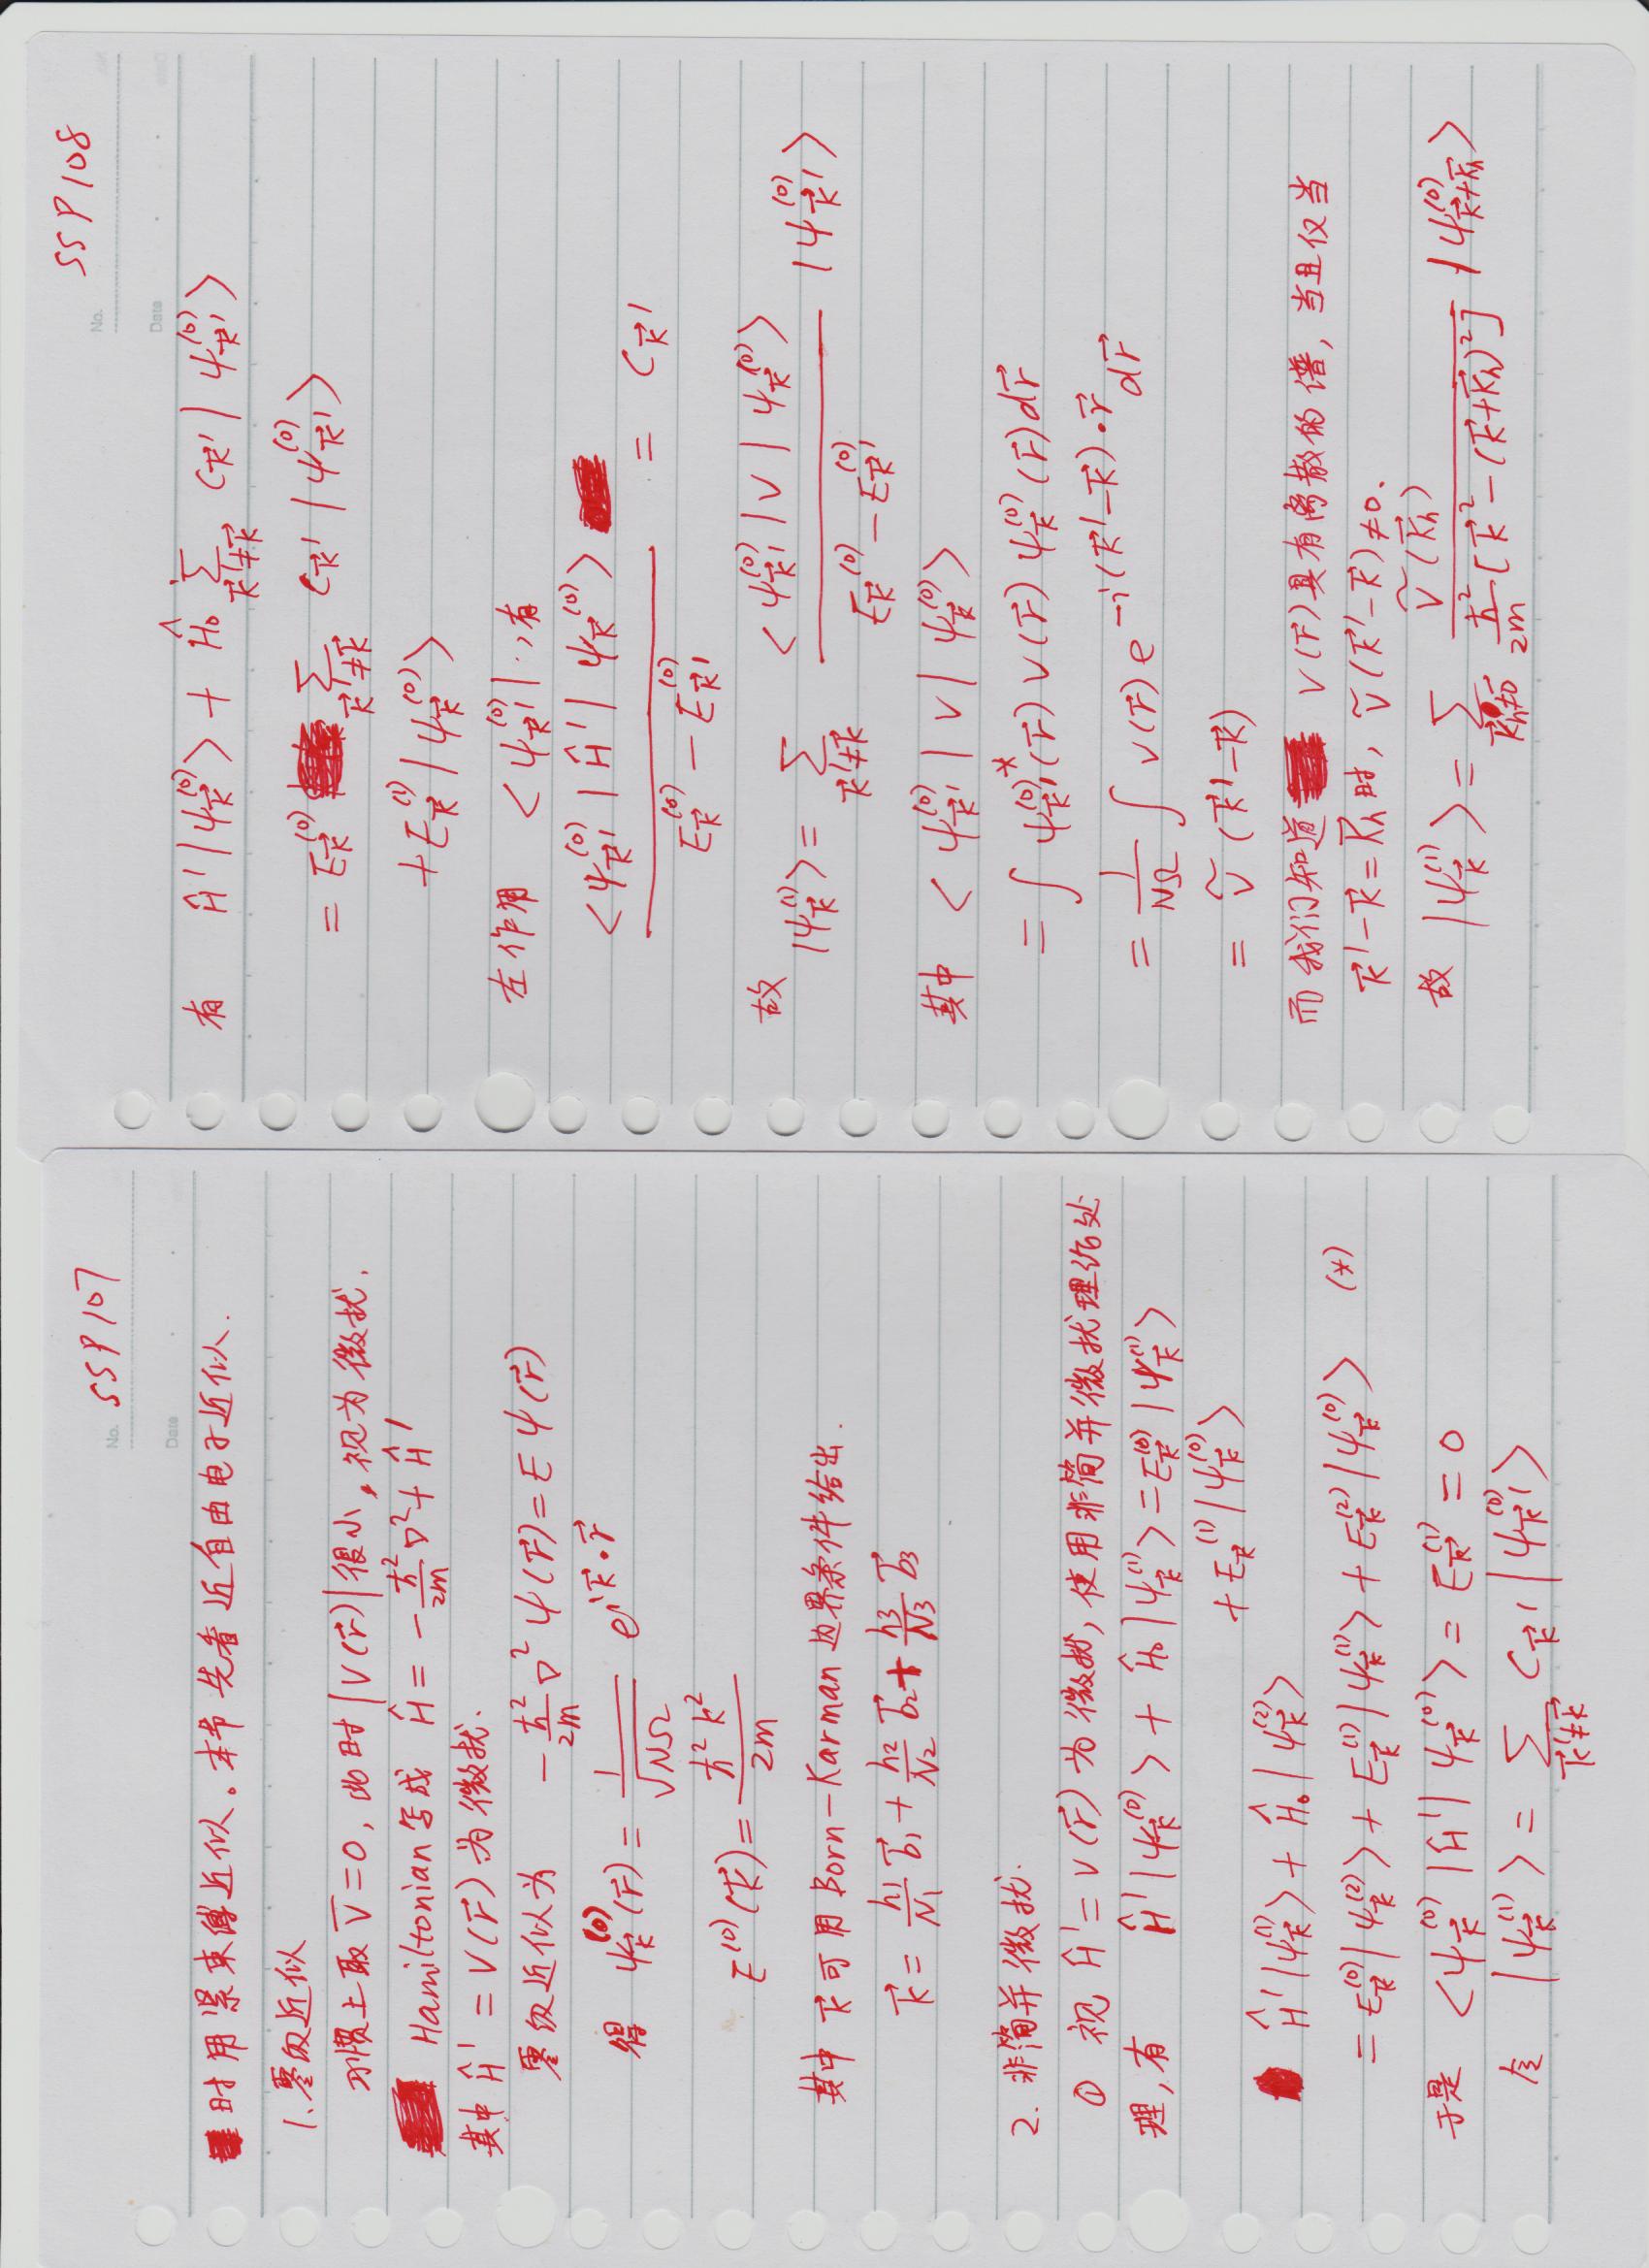 No. SSP107
Date
时用紧束缚近似。本节先看近自由电子近似.
1.零级近似
习惯上取 V̅=0, 此时|V(r⃗)|很小,视为微扰.
Hamiltonian写成 Ĥ = -ħ²/2m ∇² + Ĥ'
其中 Ĥ' = V(r⃗)为微扰.
零级近似为 -ħ²/2m ∇² ψ(r⃗) = E ψ(r⃗)
得 ψ_k⃗^(0)(r⃗) = 1/√(NΩ) e^(ik⃗·r⃗)
E^(0)(k⃗) = ħ²k²/2m
其中 k⃗ 可用 Born-Karman 边界条件给出.
k⃗ = h₁/N₁ b⃗₁ + h₂/N₂ b⃗₂ + h₃/N₃ b⃗₃
2. 非简并微扰.
① 视 Ĥ' = V(r⃗) 为微扰, 使用非简并微扰理论处
理,有 Ĥ'|ψ_k⃗^(0)> + Ĥ₀|ψ_k⃗^(1)> = E_k⃗^(0)|ψ_k⃗^(1)>
+ E_k⃗^(1)|ψ_k⃗^(0)>
Ĥ'|ψ_k⃗^(1)> + Ĥ₀|ψ_k⃗^(2)>
= E_k⃗^(0)|ψ_k⃗^(2)> + E_k⃗^(1)|ψ_k⃗^(1)> + E_k⃗^(2)|ψ_k⃗^(0)> (*)
于是 <ψ_k⃗^(0)|Ĥ'|ψ_k⃗^(0)> = E_k⃗^(1) = 0
令 |ψ_k⃗^(1)> = Σ_(k⃗'≠k⃗) C_k⃗' |ψ_k⃗'^(0)>
No. SSP108
Date
有 Ĥ'|ψ_k⃗^(0)> + Ĥ₀ Σ_(k⃗'≠k⃗) C_k⃗' |ψ_k⃗'^(0)>
= E_k⃗^(0) Σ_(k⃗'≠k⃗) C_k⃗' |ψ_k⃗'^(0)>
+ E_k⃗^(1)|ψ_k⃗^(0)>
左作用 <ψ_k⃗'^(0)|, 有
<ψ_k⃗'^(0)|Ĥ'|ψ_k⃗^(0)> / (E_k⃗^(0) - E_k⃗'^(0)) = C_k⃗'
故 |ψ_k⃗^(1)> = Σ_(k⃗'≠k⃗) <ψ_k⃗'^(0)|V|ψ_k⃗^(0)> / (E_k⃗^(0) - E_k⃗'^(0)) |ψ_k⃗'^(0)>
其中 <ψ_k⃗'^(0)|V|ψ_k⃗^(0)>
= ∫ ψ_k⃗'^(0)*(r⃗) V(r⃗) ψ_k⃗^(0)(r⃗) dr⃗
= 1/NΩ ∫ V(r⃗) e^(-i(k⃗'-k⃗)·r⃗) dr⃗
= Ṽ(k⃗'-k⃗)
而我们知道 V(r⃗)具有离散的谱, 当且仅当
k⃗'-k⃗ = K⃗ₕ 时, Ṽ(k⃗'-k⃗) ≠ 0.
故 |ψ_k⃗^(1)> = Σ_(K⃗ₕ≠0) Ṽ(K⃗ₕ) / (ħ²/2m [k⃗² - (k⃗+K⃗ₕ)²]) |ψ_(k⃗+K⃗ₕ)^(0)>